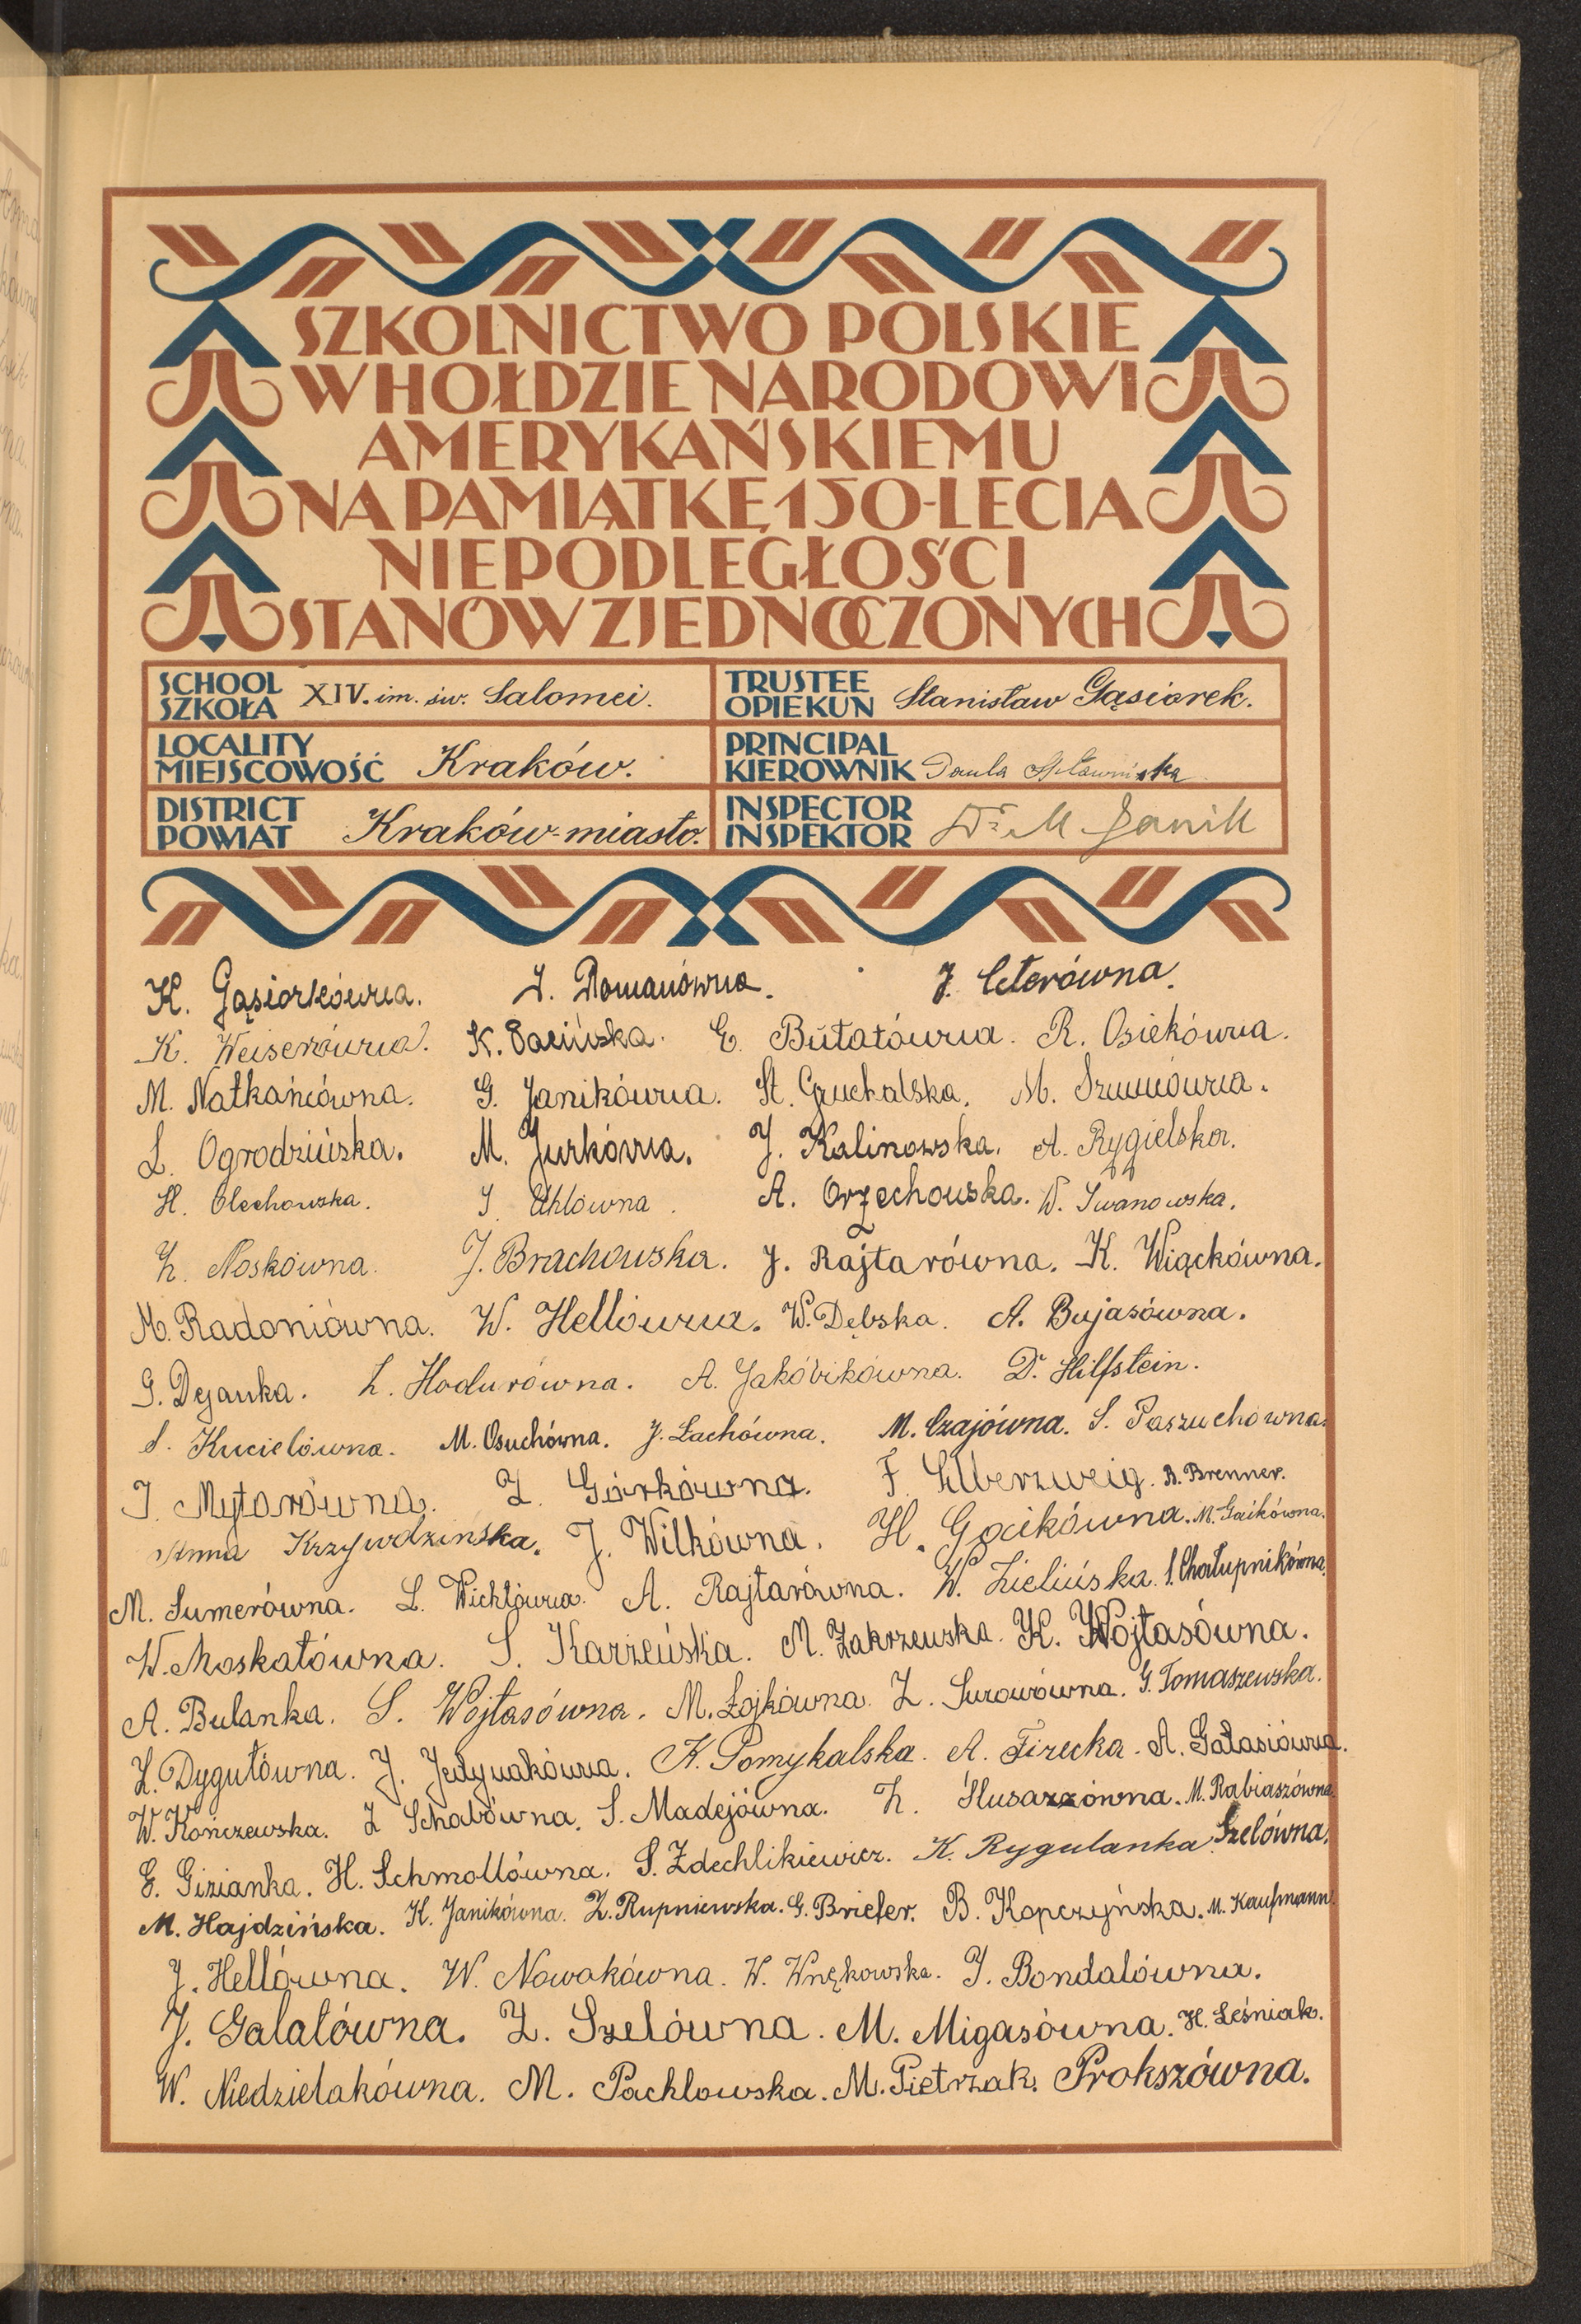 SZKOLNICTWO POLSKIE
W HOŁDZIE NARODOWI
AMERYKAŃSKIEMU
NA PAMIĄTKĘ 150-LECIA
NIEPODLEGŁOŚCI
STANÓW ZJEDNOCZONYCH
SCHOOL SZKOŁA XIV. im. św. Salomei.
TRUSTEE OPIEKUN Stanisław Gąsiorek.
LOCALITY MIEJSCOWOŚĆ Kraków.
PRINCIPAL KIEROWNIK
DISTRICT POWIAT Kraków-miasto.
INSPECTOR INSPEKTOR Dr M Janik
K. Gąsiorkówna. J. Romanówna. J. Cterówna.
K. Weiserówna. K. E. Butatówna. R. Osiekówna.
M. Natkańcówna. G. Janikówna. St. Gruchalska. M. Szumówna.
L. Ogrodzińska. M. Jurkówna. J. Kalinowska. A. Rygielska.
H. Olechowska. J. Uhlówna. A. Orzechowska. W. Iwanowska.
Z. Noskówna. J. Brachowska. J. Rajtarówna. K. Wiąckówna.
M. Radoniówna. W. Hellówna. W. Dębska. A. Bujasówna.
G. Dejanka. L. Hodurówna. A. Jakóbikówna. D. Hilfstein.
S. Kucielówna. M. Osuchówna. J. Łachówna. M. Czajówna. S. Paszuchówna.
J. Mytarówna. Z. Górkówna. F. Silberzweig. B. Brenner.
Anna Krzywdzińska. J. Wilkówna. H. Gacikówna. M. Gaikówna.
M. Sumerówna. L. Wichtówna. A. Rajtarówna. W. Zielińska. S. Chałupnikówna.
W. Moskatówna. S. Karzeńska. M. Zakrzewska. K. Wojtasówna.
A. Bulanka. S. Wojtasówna. M. Łojkówna. Z. Surowówna. G. Tomaszewska.
Z. Dygutówna. J. Jedynakówna. K. Pomykalska. A. Firecka. A. Gałasiówna.
W. Kończewska. Z Schabówna. S. Madejówna. Z. Ślusarzówna. M. Rabiaszówna.
E. Gizianka. H. Schmollówna. S. Zdechlikiewicz. K. Rygulanka. Szelówna.
M. Hajdzińska. K. Janikówna. Z. Rupniewska. G. Briefer. B. Kopczyńska. M. Kaufmann.
J. Hellówna. W. Nowakówna. W. Wnękowska. J. Bondalówna.
J. Galatówna. Z. Szelówna. M. Migasówna. H. Leśniak.
W. Niedzielakówna. M. Pachlowska. M. Pietrzak. Prokszówna.